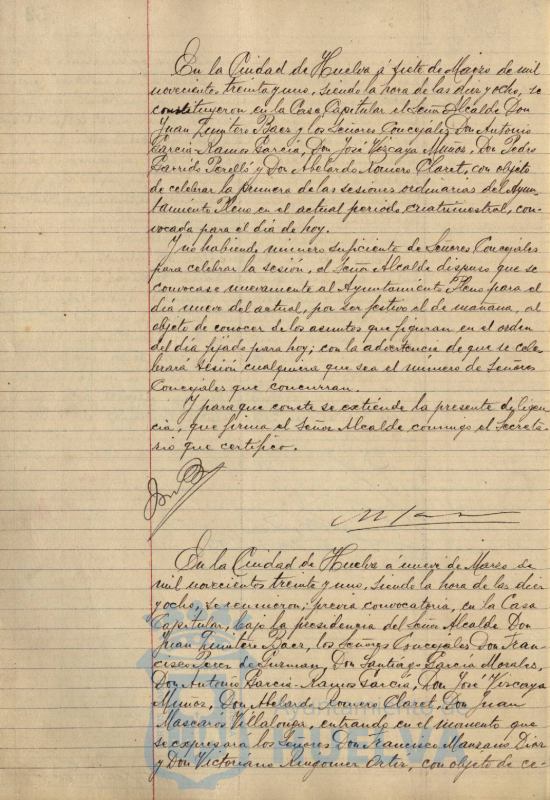 En la Ciudad de Huelva á siete de Marzo de mil
novecientos treinta y uno, siendo la hora de las diez y ocho, se
constituyeron en la Casa Capitular el Señor Alcalde Don
Juan Quintero Baez y los Señores Concejales Don Antonio
Garcia-Ramos Garcia, Don José Vizcaya Muñoz, Don Pedro
Garrido Perelló y Don Abelardo Romero Claret, con objeto
de celebrar la primera de las sesiones ordinarias del Ayun-
tamiento Pleno en el actual periodo cuatrimestral, con-
vocada para el día de hoy.
Y no habiendo número suficiente de Señores Concejales
para celebrar la sesión, el Señor Alcalde dispuso que se
convocase nuevamente al Ayuntamiento Pleno para el
día nueve del actual, por ser festivo el de mañana, al
objeto de conocer de los asuntos que figuran en el orden
del día fijado para hoy; con la advertencia de que se cele-
brará sesión cualquiera que sea el número de Señores
Concejales que concurran.
Y para que conste se extiende la presente diligen-
cia, que firma el Señor Alcalde conmigo el Secreta-
rio que certifico.
En la Ciudad de Huelva á nueve de Marzo de
mil novecientos treinta y uno, siendo la hora de las diez
y ocho, se reunieron, previa convocatoria, en la Casa
Capitular, bajo la presidencia del Señor Alcalde Don
Juan Quintero Baez, los Señores Concejales Don Fran-
cisco Perez de Guzman, Don Santiago Garcia Morales,
Don Antonio Garcia-Ramos Garcia, Don José Vizcaya
Muñoz, Don Abelardo Romero Claret, Don Juan
Mascaros Villalonga, entrando en el momento que
se expresara los Señores Don Francisco Manzano Diaz
y Don Victoriano Ortiz, con objeto de ce-
Ayuntamiento
HUELVA